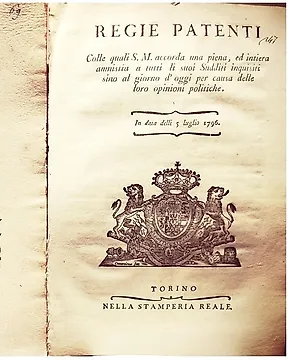 REGIE PATENTI
Colle quali S. M. accorda una piena, ed intiera
amnistia a tutti li suoi Sudditi inquisiti
sino al giorno d'oggi per causa delle
loro opinioni politiche.
In data delli 5 luglio 1796.
TORINO
NELLA STAMPERIA REALE.